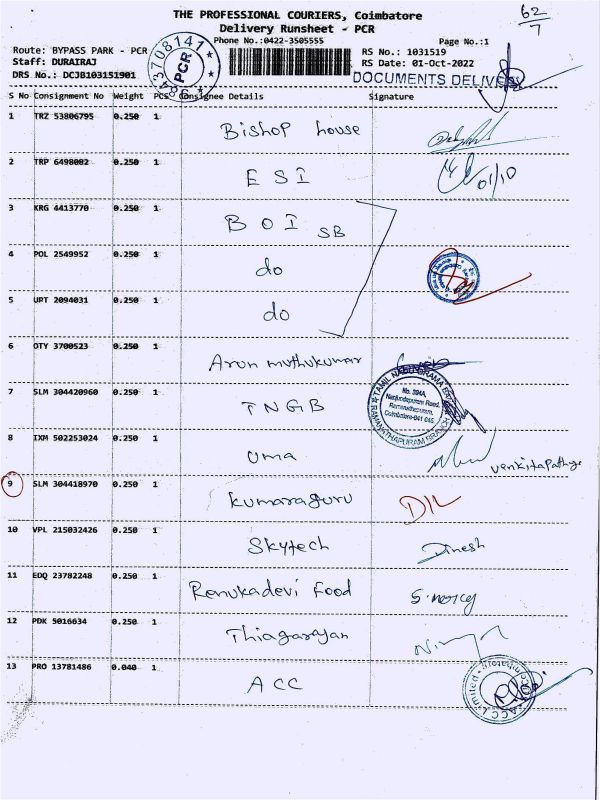 THE PROFESSIONAL COURIERS, Coimbatore
62/7
Delivery Runsheet - PCR
Phone No.:0422-3505555
Page No.:1
Route: BYPASS PARK - PCR
RS No.: 1031519
Staff: DURAIRAJ
RS Date: 01-Oct-2022
DRS No.: DCJB103151901
9843708141
PCR
DOCUMENTS DELIVERY
S No Consignment No Weight PCS Consignee Details Signature
1 TRZ 53806795 0.250 1 Bishop house
2 TRP 6498002 0.250 1 E S I 01/10
3 KRG 4413770 0.250 1 B O I SB
4 POL 2549952 0.250 1 do
5 UPT 2094031 0.250 1 do
6 OTY 3700523 0.250 1 Arun muthukumar
7 SLM 304420960 0.250 1 T N G B
TAMIL NADU GRAMA
No. 394A,
Nanjundapuram Road,
Ramanathapuram,
Coimbatore-641 045.
RAMANATHAPURAM BRANCH
8 IXM 502253024 0.250 1 Uma
9 SLM 304418970 0.250 1 Kumaraguru
10 VPL 215032426 0.250 1 Skytech Dinesh
11 EDQ 23782248 0.250 1 Renukadevi Food
12 PDK 5016634 0.250 1 Thiagarajan
13 PRO 13781486 0.040 1 A C C
ACC Limited